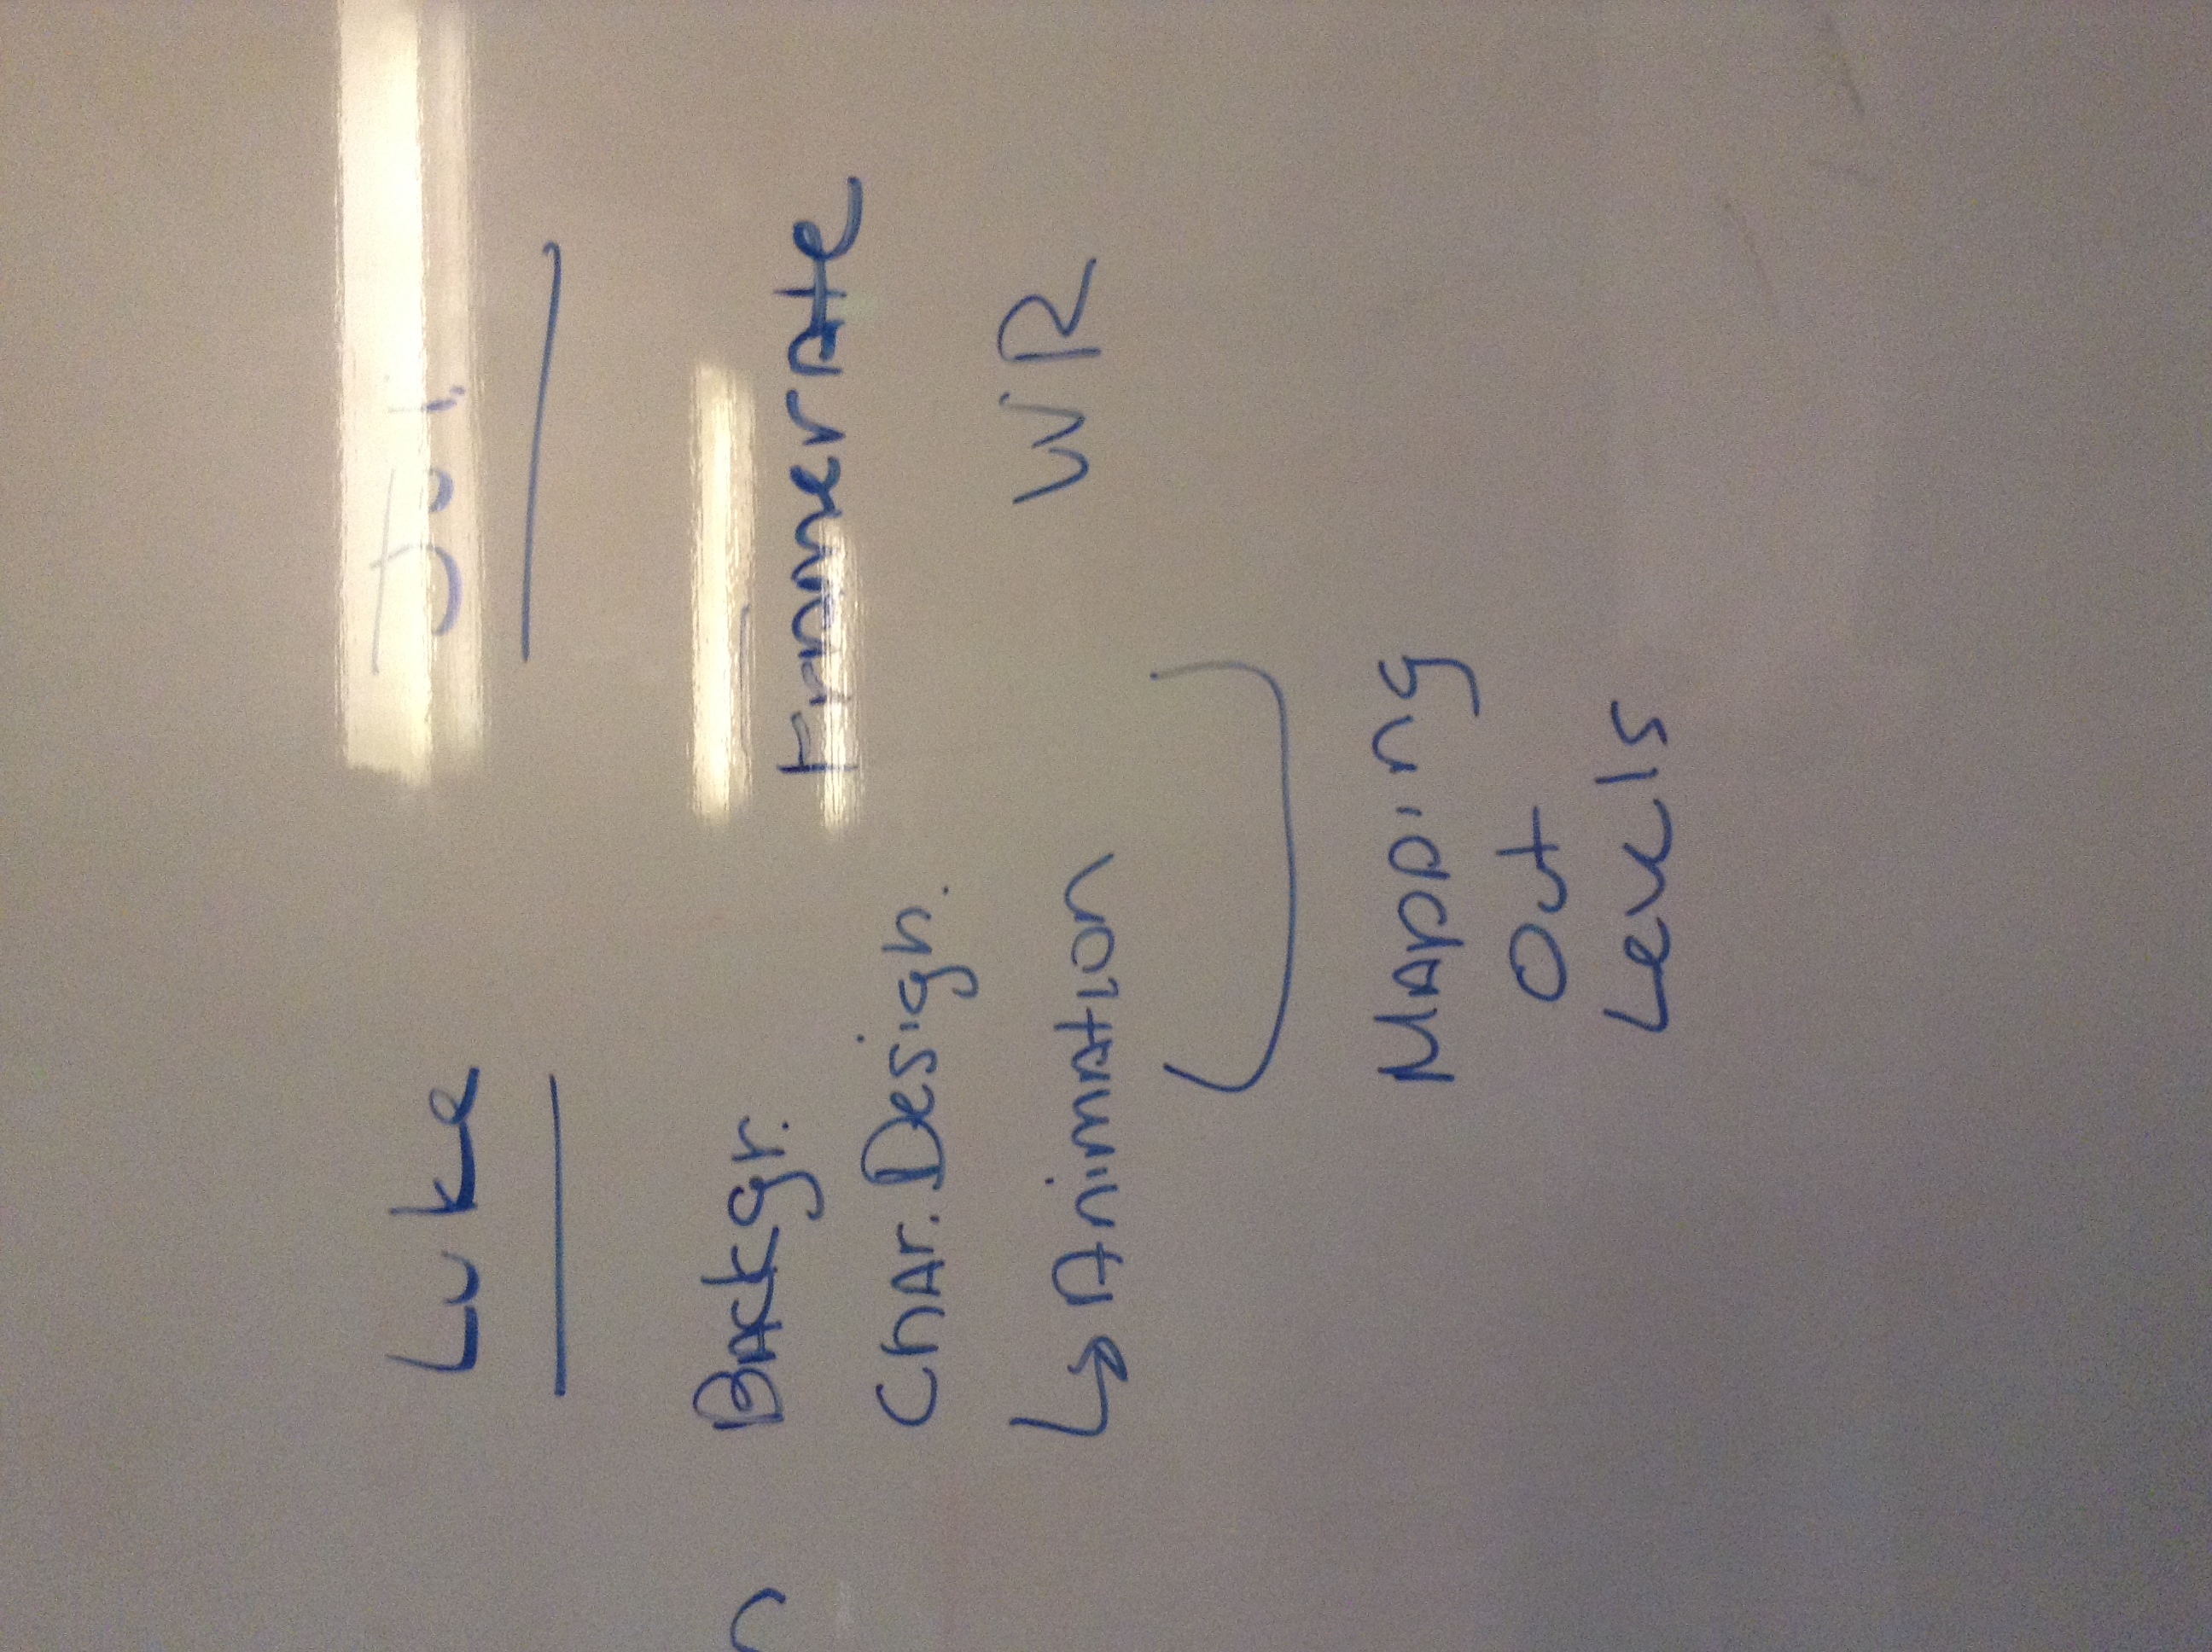 Luke
Backgr.
Char. Design.
↳ Animation
Jul.
Framerate
WR
Mapping
Out
Levels